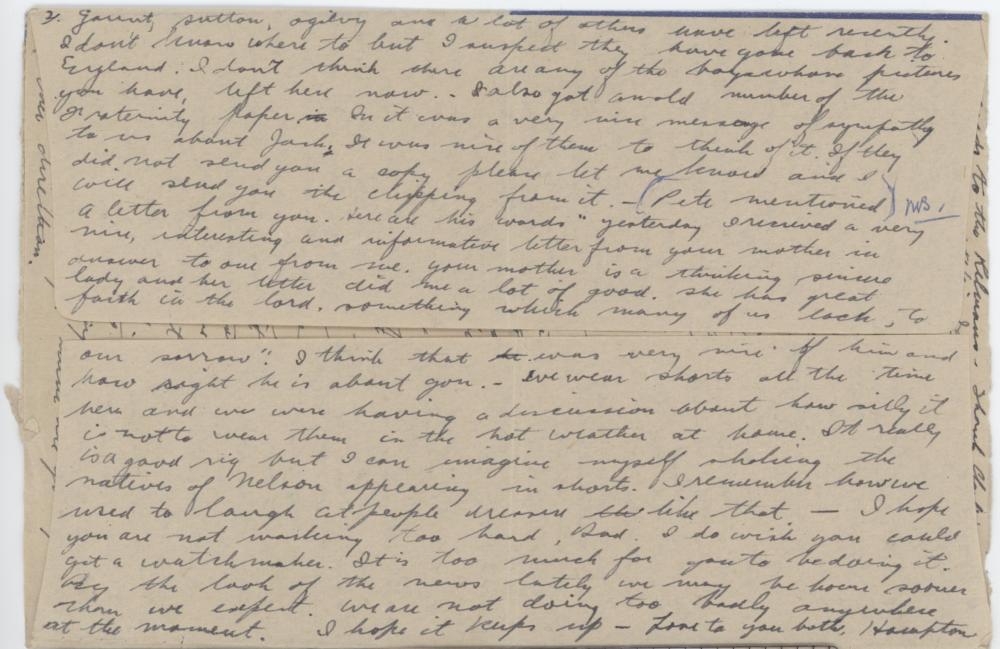 2. Gaunt, Sutton, Ogilvy and a lot of others have left recently.
I don't know where to but I suspect they have gone back to
England. I don't think there are any of the boys whose pictures
you have, left here now. - I also got an old number of the
Fraternity paper. In it was a very nice message of sympathy
to us about Jack. It was nice of them to think of it. If they
did not send you a copy please let me know and I
will send you the clipping from it. - (Pete mentioned) NB.
a letter from you. Here are his words "yesterday I received a very
nice, interesting and informative letter from your mother in
answer to one from me. your mother is a thinking, sincere
lady and her letter did me a lot of good. she has great
faith in the lord. something which many of us lack, to
our sorrow". I think that was very nice of him and
how right he is about you. - We wear shorts all the time
here and we were having a discussion about how silly it
is not to wear them in the hot weather at home. It really
is a good rig but I can imagine myself shocking the
natives of Nelson appearing in shorts. I remember how we
used to laugh at people dressed like that — I hope
you are not working too hard, Dad. I do wish you could
get a watchmaker. It is too much for you to be doing it.
By the look of the news lately we may be home sooner
than we expect. We are not doing too badly anywhere
at the moment. I hope it keeps up - Love to you both, Hampton
direction.
to the